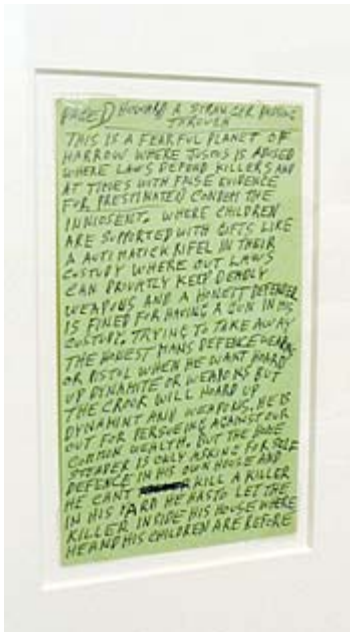 HOWARD A STRANGER PASSING
THROUGH
THIS IS A FEARFUL PLANET OF
HARROW WHERE JUSTIS IS ABUSED
WHERE LAWS DEFEND KILLERS AND
AT TIMES WITH FALSE EVIDENCE
FOR PRESTINATED CONDEM THE
INNIOSENT. WHERE CHILDREN
ARE SUPPORTED WITH GIFTS LIKE
A AUTIMATICK RIFEL IN THEIR
CUSTUDY WHERE OUT LAWS
CAN PRIVATLY KEEP DEADLY
WEAPONS AND A HONETT DEFENDER
IS FINED FOR HAVING A GUN IN HIS
CUSTUDY. TRYING TO TAKE AWAY
THE HONEST MANS DEFENCE
OR PISTOL WHEN HE WANT HOARD
UP DYNAMITE OR WEAPONS BUT
THE CROOK WILL HOARD UP
DYNAMINT AND WEAPONS. HE IS
OUT FOR PERSUEING AGAINST OUR
COMMON WEALTH. BUT THE HOME
STEADER IS ONLY ASKING FOR SELF
DEFENCE IN HIS OWN HOUSE AND
HE CANT KILL A KILLER
IN HIS YARD HE HASTO LET THE
KILLER INSIDE HIS HOUSE WHERE
HE AND HIS CHILDREN ARE BEFORE